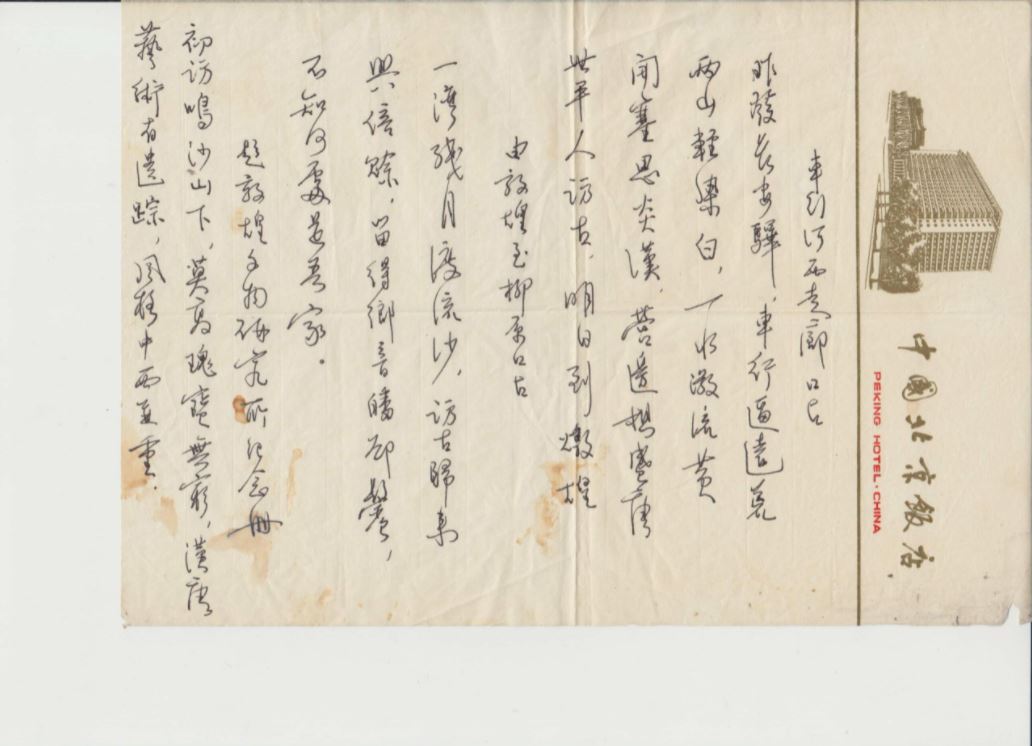 中國北京飯店
PEKING HOTEL·CHINA
車行河西走廊口占
昨發長安驛，車行逼遠荒
兩山輕染白，一水激流黃
開塞思炎漢，營邊想盛唐
世平人訪古，明日到燉煌
由敦煌至柳原口占
一灣殘月渡流沙，訪古歸來
興倍賒，留得鄉音皤卻鬢，
不知何處是吾家。
題敦煌文物研究所紀念冊
初訪鳴沙山下，莫高瑰寶無窮，漢唐
藝術有遺踪，風格中西並重．